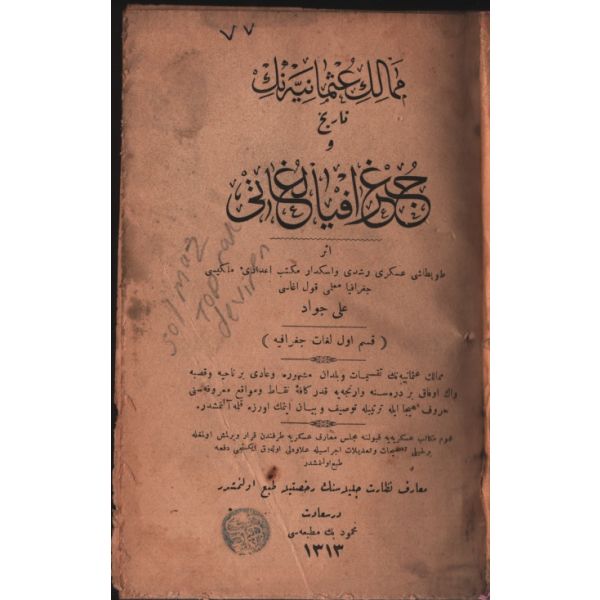 ٧٧
ممالك عثمانيه نك
تاريخ
و
جغرافيا لغاتى
اثر
طوبطاشى عسكرى رشدى واسكدار مكتب اعدادئ ملكيسى
جغرافيا معلمى قول اغاسى
على جواد
( قسم اول لغات جغرافيه )
ممالك عثمانيه نك تقسيمات وبلدان مشهوره وعادى بر ناحيه وقصبه
واك اوفاق بر دره سنه وارنجه يه قدر كافۀ نقاط ومواقع معروفه سنى
حروف هيجا ايله ترتيبله توصيف و بيان ايتمك اوزره قلمه آلنمشدر.
عموم مكاتب عسكريه يه قبولنه مجلس معارف عسكريه طرفندن قرار ويرلمش اولمغله
تصحيحات وتعديلات اجراسيله علاوه لى اوله رق ايكنجى دفعه
طبع اولنمشدر
معارف نظارت جليله سنك رخصتيله طبع اولنمشدر
درسعادت
محمود بك مطبعه سى
١٣١٣
solmaz
TOPRAK
deviren